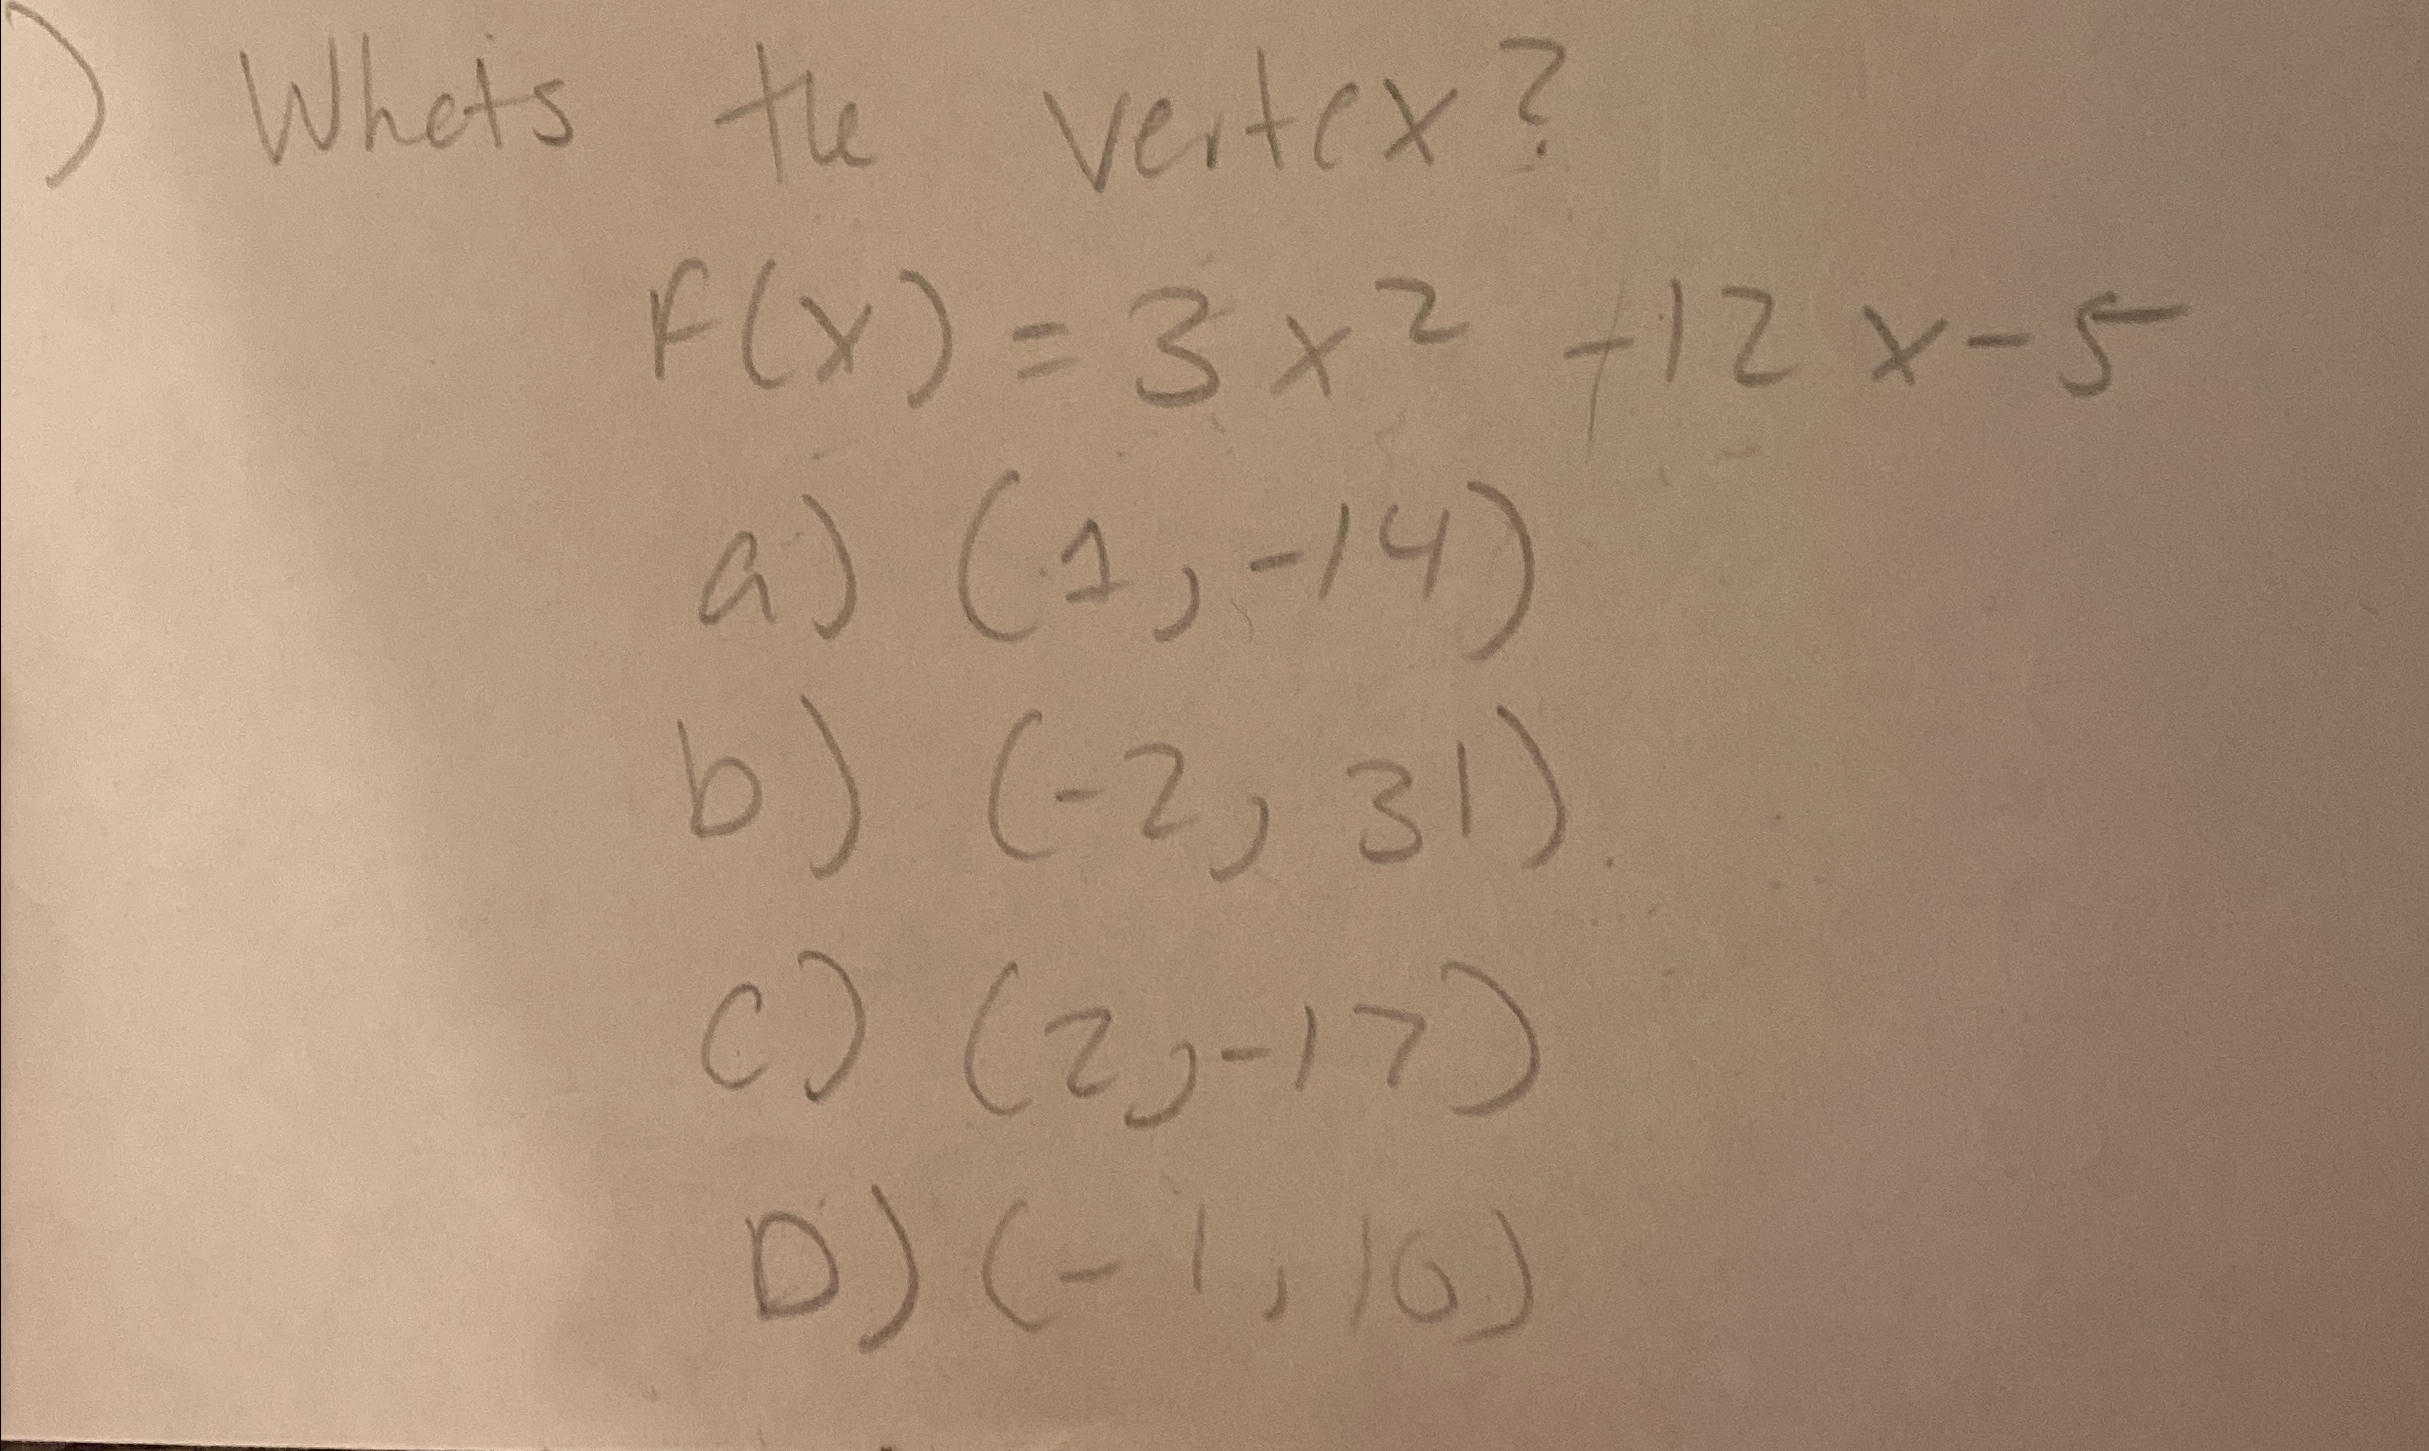 ) Whats the vertex?
F(x) = 3x² +12x-5
a) (1, -14)
b) (-2, 31)
c) (2, -17)
D) (-1, 10)